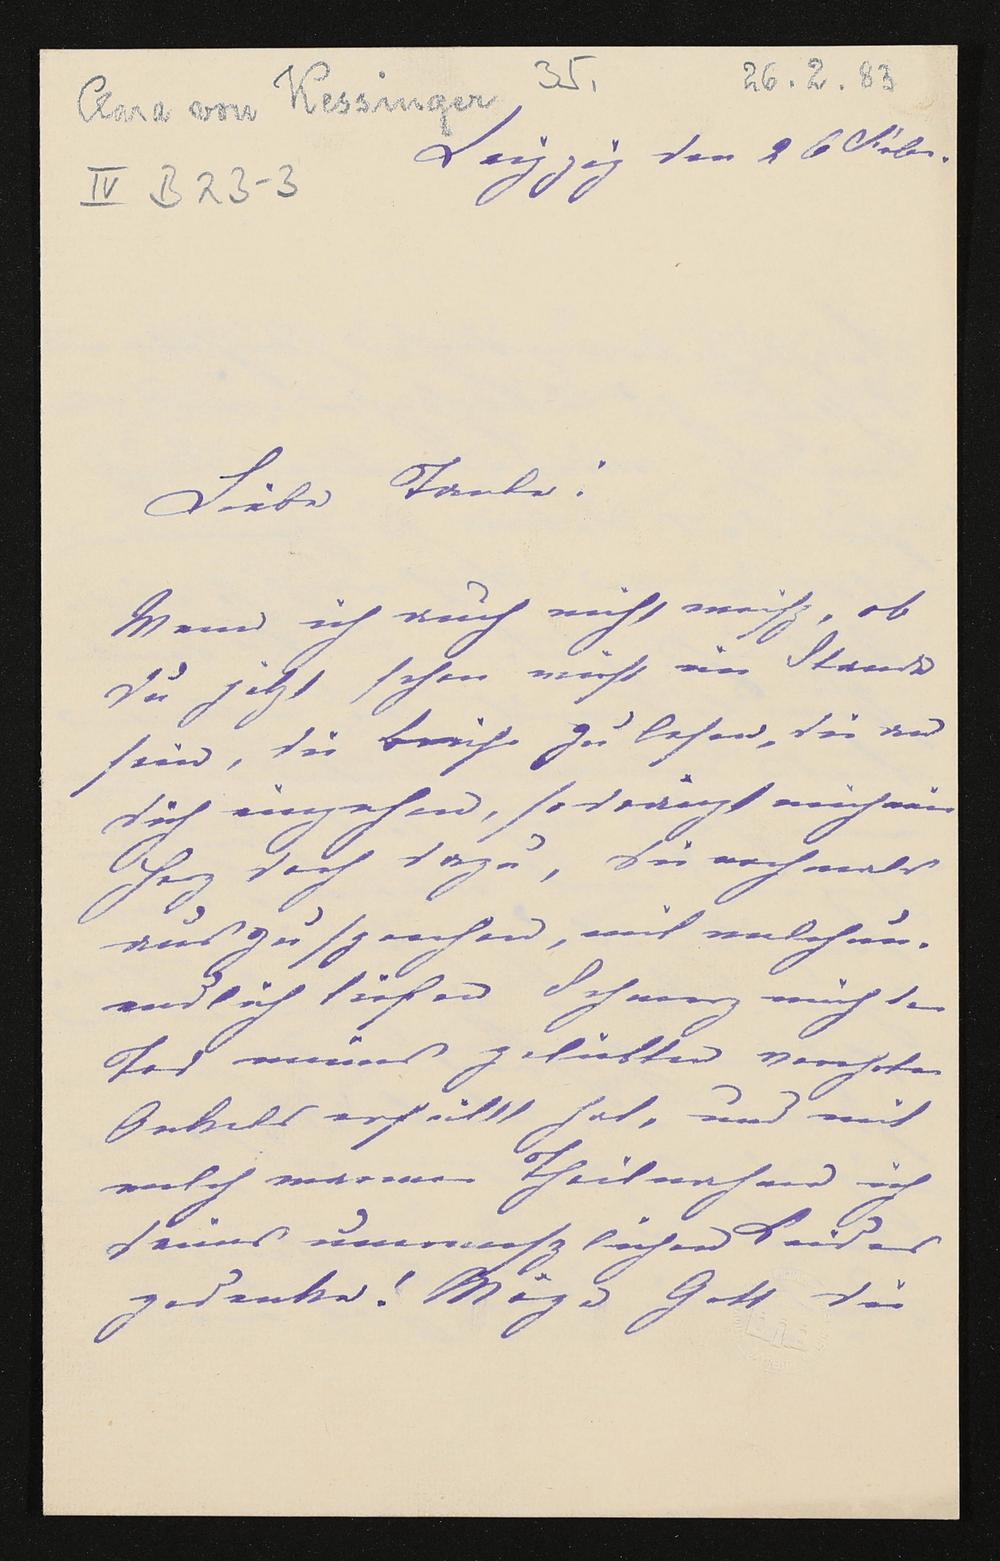 Clara von Kessinger 35. 26.2.83
IV B 23-3
Leipzig den 26 Febr.
Liebe Tante!
Wenn ich auch nicht weiß, ob
Du jetzt schon wirst im Stande
sein, die briefe zu lesen, die an
dich eingehen, so drängt mich mein
Herz doch dazu, dir nochmals
auszusprechen, mit welch un-
endlich tiefen Schmerz mich der
Tod meines geliebten verehrten
Onkels erfüllt hat, und mit
welch warmer Theilnahme ich
deines unermeßlichen Leides
gedenke! Möge Gott dir